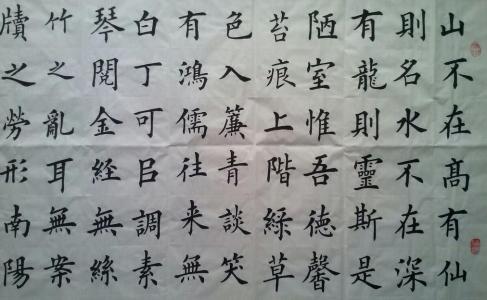 山不在髙有仙
則名水不在深
有龍則靈斯是
陋室惟吾德馨
苔痕上階緑草
色入簾青談笑
有鴻儒往来無
白丁可㠯調素
琴閱金経無絲
竹之亂耳無案
牘之勞形南陽